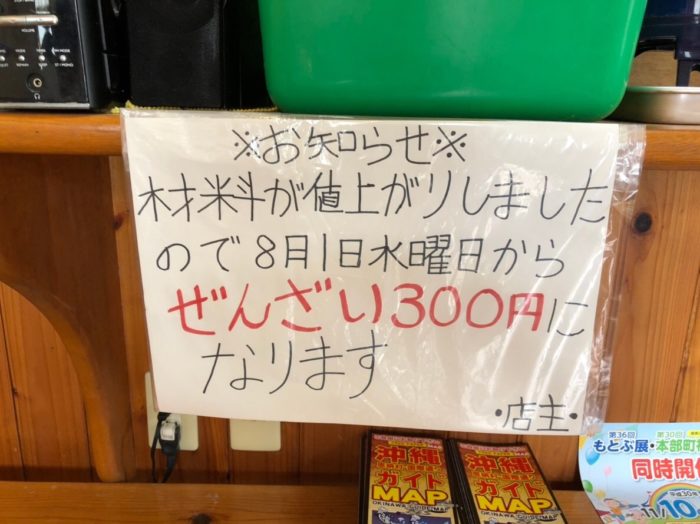 ※お知らせ※
材料が値上がりしました
ので8月1日水曜日から
ぜんざい300円に
なります
・店主・
沖縄
ガイド
MAP
OKINAWA GUIDE MAP
沖縄
ガイド
MAP
第36回 第30回
もとぶ展・本部町
同時開
平成30年